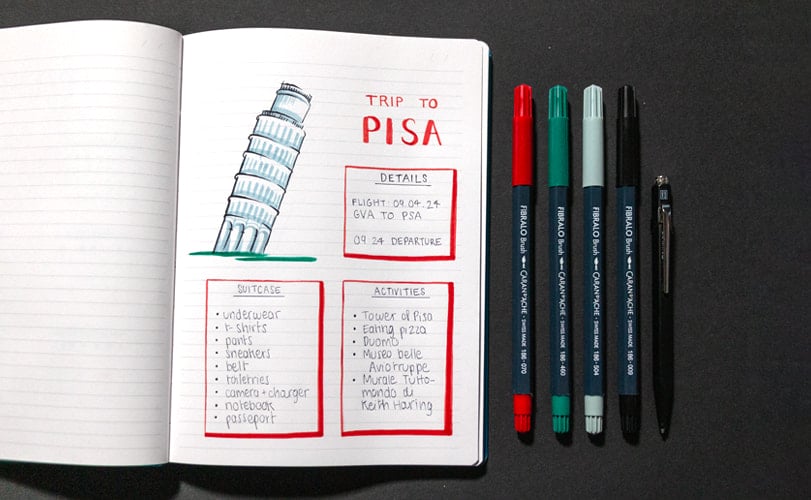 TRIP TO
PISA
DETAILS
FLIGHT: 09.04.24
GVA TO PSA
09.24 DEPARTURE
SUITCASE
• underwear
• t-shirts
• pants
• sneakers
• belt
• toiletries
• camera + charger
• notebook
• passeport
ACTIVITIES
• Tower of Pisa
• Eating pizza
• Duomo
• Museo belle
Aviotruppe
• Murale Tutto-
mondo di
Keith Haring
FIBRALO Brush CARAN D'ACHE - SWISS MADE 186-070
FIBRALO Brush CARAN D'ACHE - SWISS MADE 186-460
FIBRALO Brush CARAN D'ACHE - SWISS MADE 186-504
FIBRALO Brush CARAN D'ACHE - SWISS MADE 186-009